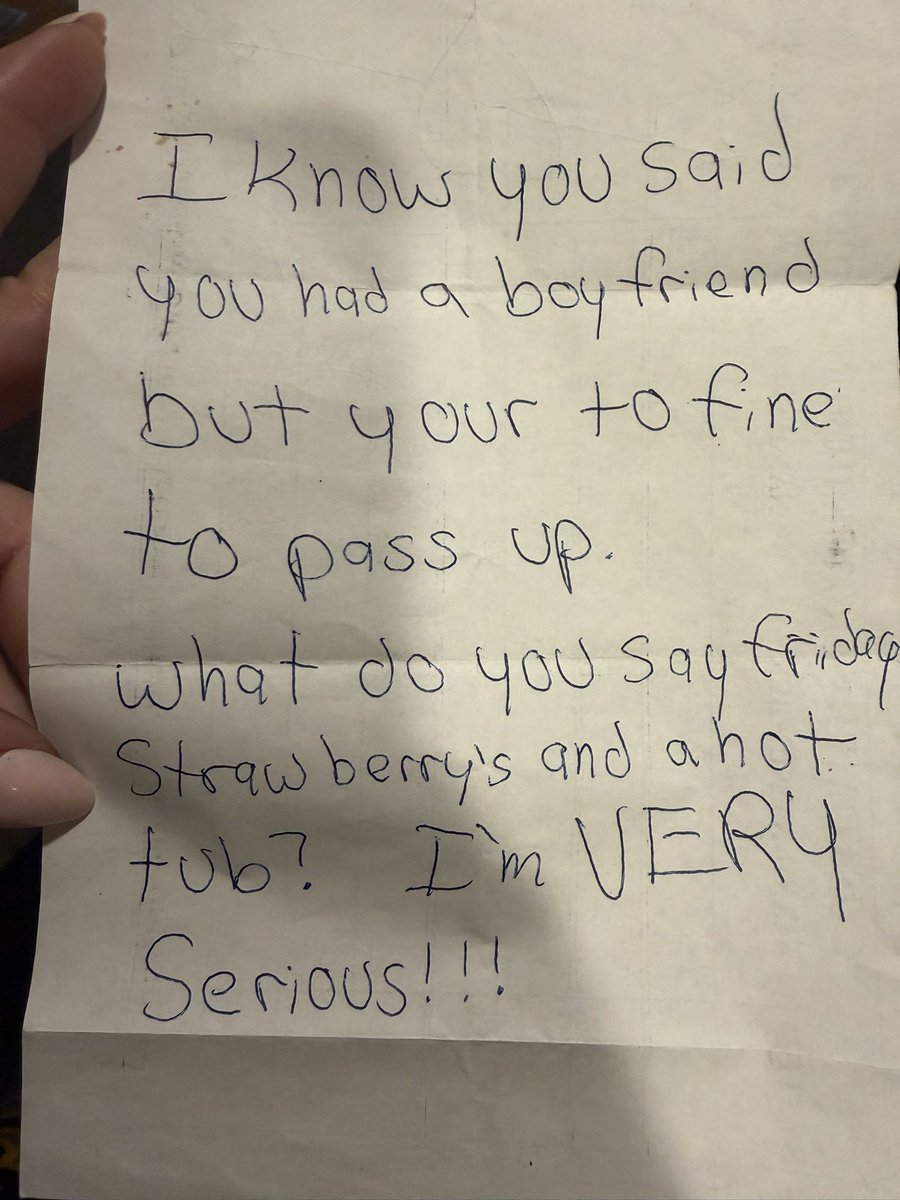 I Know you said
you had a boyfriend
but your to fine
to pass up.
what do you say friday
Strawberry's and a hot
tub? I'm VERY
Serious!!!